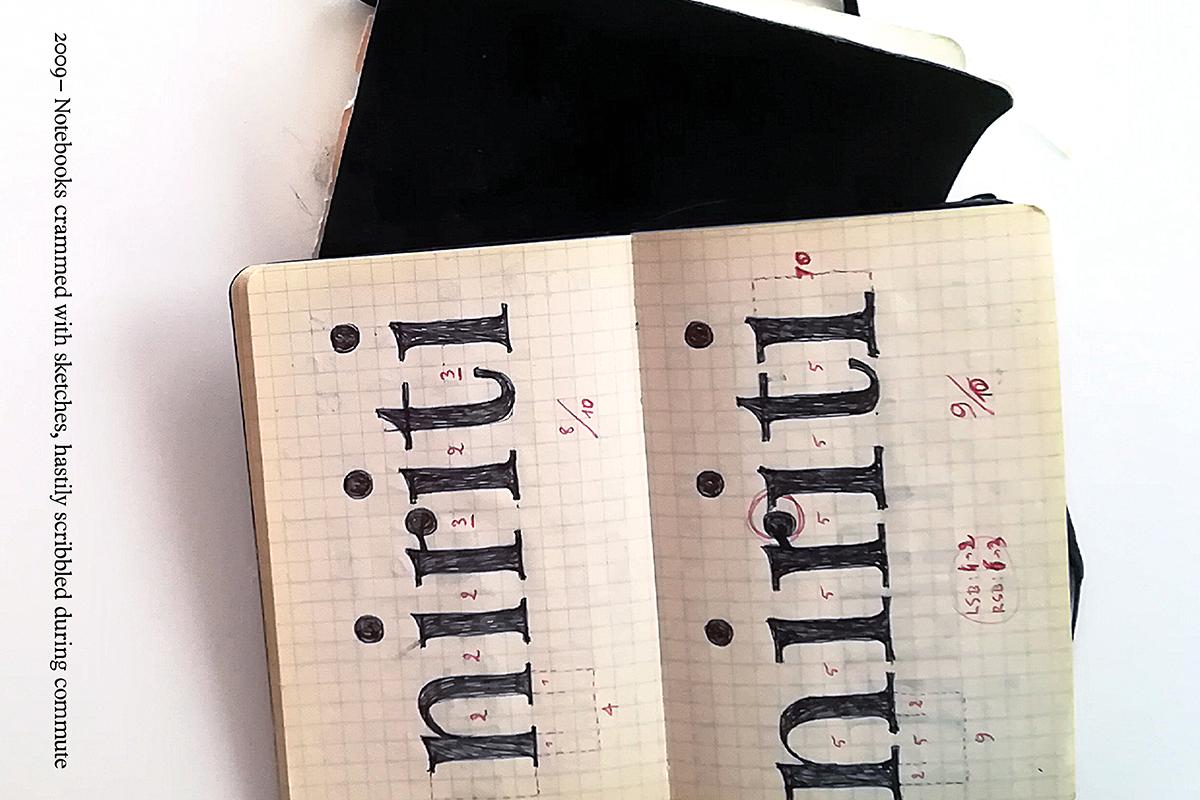 2009– Notebooks crammed with sketches, hastily scribbled during commute
niriti
2 2 2 3 2 3
1 1
4
8/10
10
niriti
5 5 5 5 5 5
2 5 2
9
9/10
LSB:
RSB: